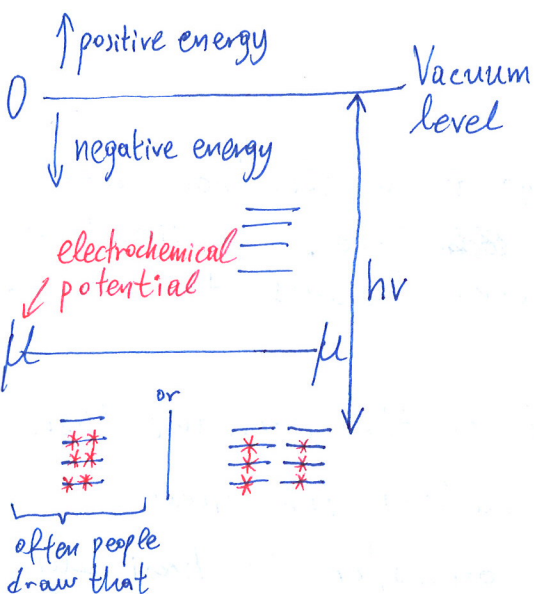 ↑ positive energy
0
Vacuum
level
↓ negative energy
electrochemical
potential
hν
μ
μ
or
often people
draw that